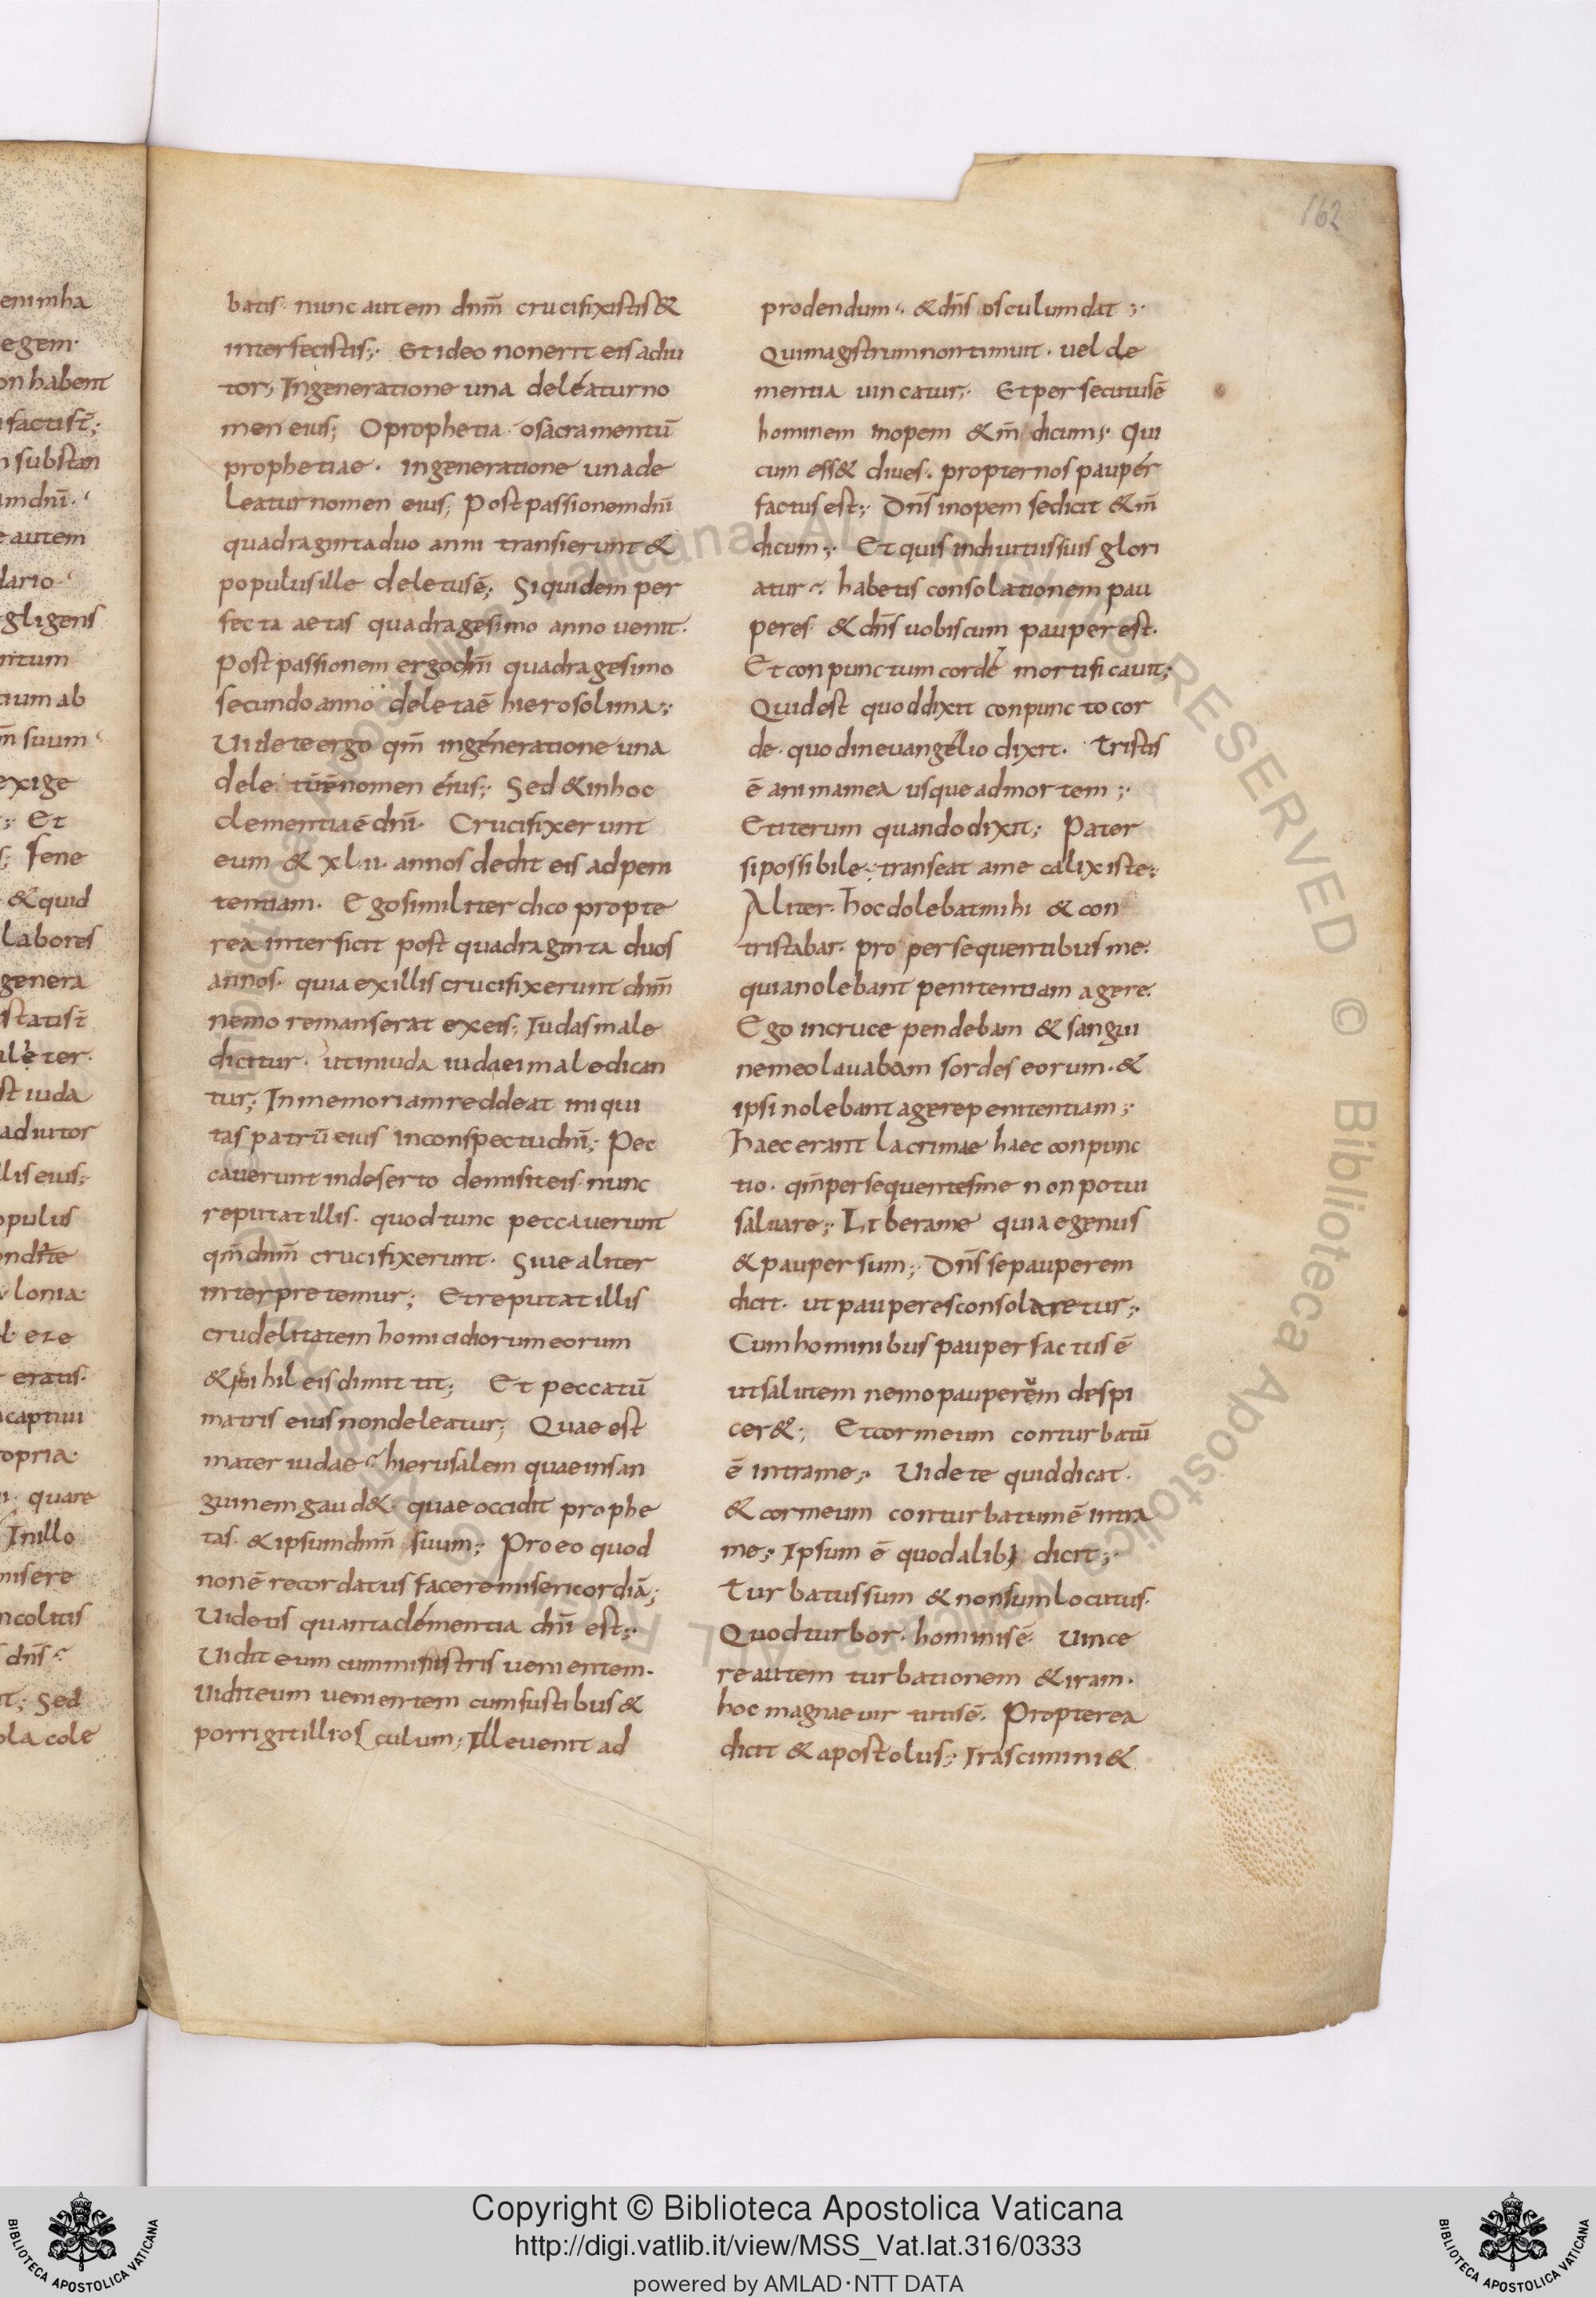 162
enim ha
egem·
on habent
factist̄;
substan
dnī·
autem
dario
gligens
ium ab
suum
exige
Et
Sene
& quid
labores
genera
statist̄
st iuda
adiutor
llis eius;
opulus
lonia·
eratis·
captiui
opria·
quare
In illo
misere
ncolitis
dns̄
Sed
ola cole
batis· nunc autem dnm̄ crucifixistis &
interfecistis;· Et ideo non erit eis adiu
tor; In generatione una deleatur no
men eius; O prophetia· o sacramentū
prophetiae· in generatione una de
leatur nomen eius; Post passionem dnī
quadraginta duo anni transierunt &
populus ille deletus ē; Siquidem per
fecta aetas quadragesimo anno uenit·
post passionem ergo dnī quadragesimo
secundo anno deleta ē hierosolima;·
Uidete ergo qm̄ in generatione una
dele tū ē nomen eius;· Sed & in hoc
clementia ē dnī· Crucifixerunt
eum & xl·ii· annos dedit eis ad peni
tentiam· Ego similiter dico propte
rea interficit post quadraginta duos
annos· quia ex illis crucifixerunt dnm̄
nemo remanserat ex eis; Iudas male
dicitur· ut in iuda iudaei maledican
tur; In memoriam reddeat iniqui
tas patrū eius in conspectu dnī; Pec
cauerunt in deserto demisit eis· nunc
reputat illis· quod tunc peccauerunt
qm̄ dnm̄ crucifixerunt· Siue aliter
interpretemur; Et reputat illis
crudelitatem homicidiorum eorum
& nihil eis dimittit; Et peccatū
matris eius non deleatur; Quae est
mater iudae? hierusalem quae in san
guinem gaud&· quae occidit prophe
tas· & ipsum dnm̄ suum; Pro eo quod
non ē recordatus facere misericordiā;
Uidetis quanta clementia dnī est;·
Uidit eum cum ministris uenientem·
uidit eum uenientem cum fustibus &
porrigit illi osculum; Ille uenit ad
prodendum· & dns̄ osculum dat;·
Qui magistrum non timuit· uel cle
mentia uincatur;· Et persecutus ē
hominem inopem & m̄dicum;· Qui
cum ess& diues· propter nos pauper
factus est;· Dns̄ inopem se dicit & m̄
dicum;· Et quis in diuitiis suis glori
atur? habetis consolationem pau
peres· & dns̄ uobiscum pauper est·
Et conpunctum corde mortificauit;
Quid est quod dixit conpuncto cor
de· quod in euangelio dixit· Tristis
ē anima mea usque ad mortem;·
Et iterum quando dixit; Pater
si possibile· transeat a me calix iste;
Aliter· hoc dolebat mihi & con
tristabar· pro persequentibus me·
quia nolebant penitentiam agere·
Ego in cruce pendebam & sangui
ne meo lauabam sordes eorum· &
ipsi nolebant agere penitentiam;·
haec erant lacrimae haec conpunc
tio· qm̄ persequentes me non potui
saluare;· Libera me quia egenus
& pauper sum;· Dns̄ se pauperem
dicit· ut pauperes consolaretur;·
Cum hominibus pauper factus ē
ut saluтem nemo pauperem despi
cer&; Et cor meum conturbatū
ē intra me;· Uidete quid dicat·
& cor meum conturbatum ē intra
me;· Ipsum ē quod alibi dicit;·
Turbatus sum & non sum locutus·
Quod turbor· hominis ē· Uince
re autem turbationem & iram·
hoc magnae uirtutis ē· Propterea
dicit & apostolus;· Irascimini &
Copyright © Biblioteca Apostolica Vaticana
http://digi.vatlib.it/view/MSS_Vat.lat.316/0333
powered by AMLAD·NTT DATA
BIBLIOTECA APOSTOLICA VATICANA
BIBLIOTECA APOSTOLICA VATICANA